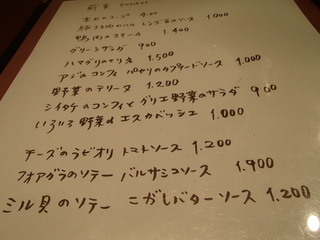 前菜
900
1.000
鴨肉のスモーク 1.400
グリーンサラダ 900
ハマグリのマリネ 1.500
アジのコンフィ パセリのクーラードソース 1.000
野菜のテリーヌ 1.200
シイタケのコンフィとグリエ野菜のサラダ 900
いろいろ野菜のエスカベッシュ 1.000
チーズのラビオリ トマトソース 1.200
フォアグラのソテー バルサミコソース 1.900
ミル貝のソテー こがしバターソース 1.200